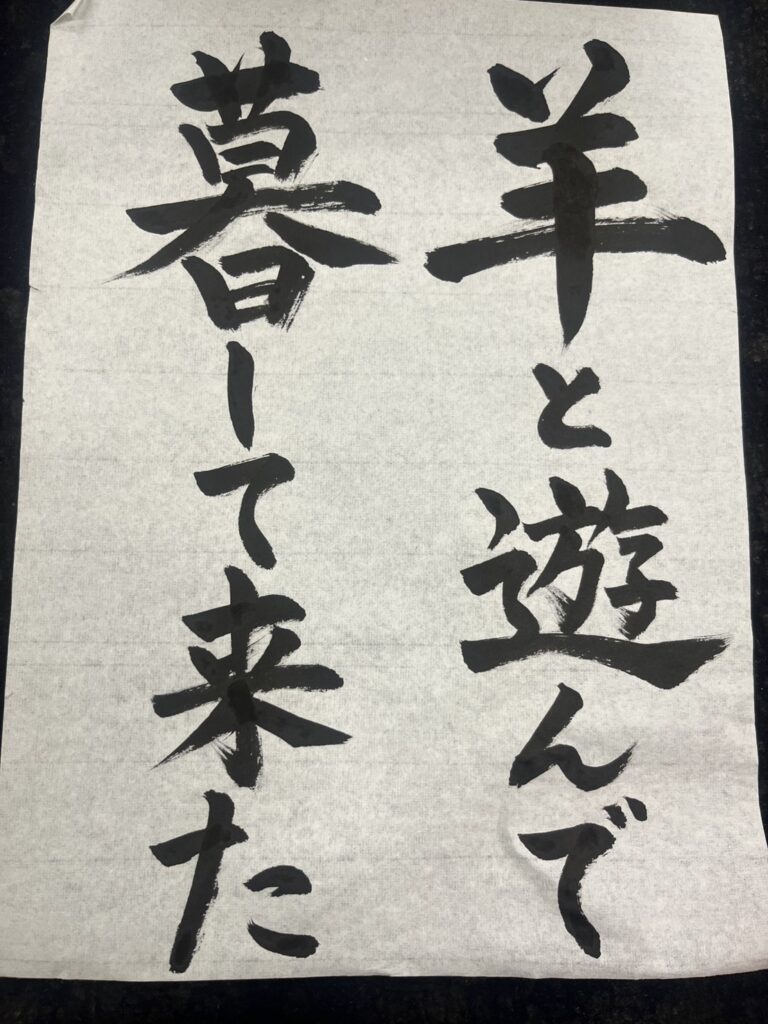 羊と遊んで
暮して来た